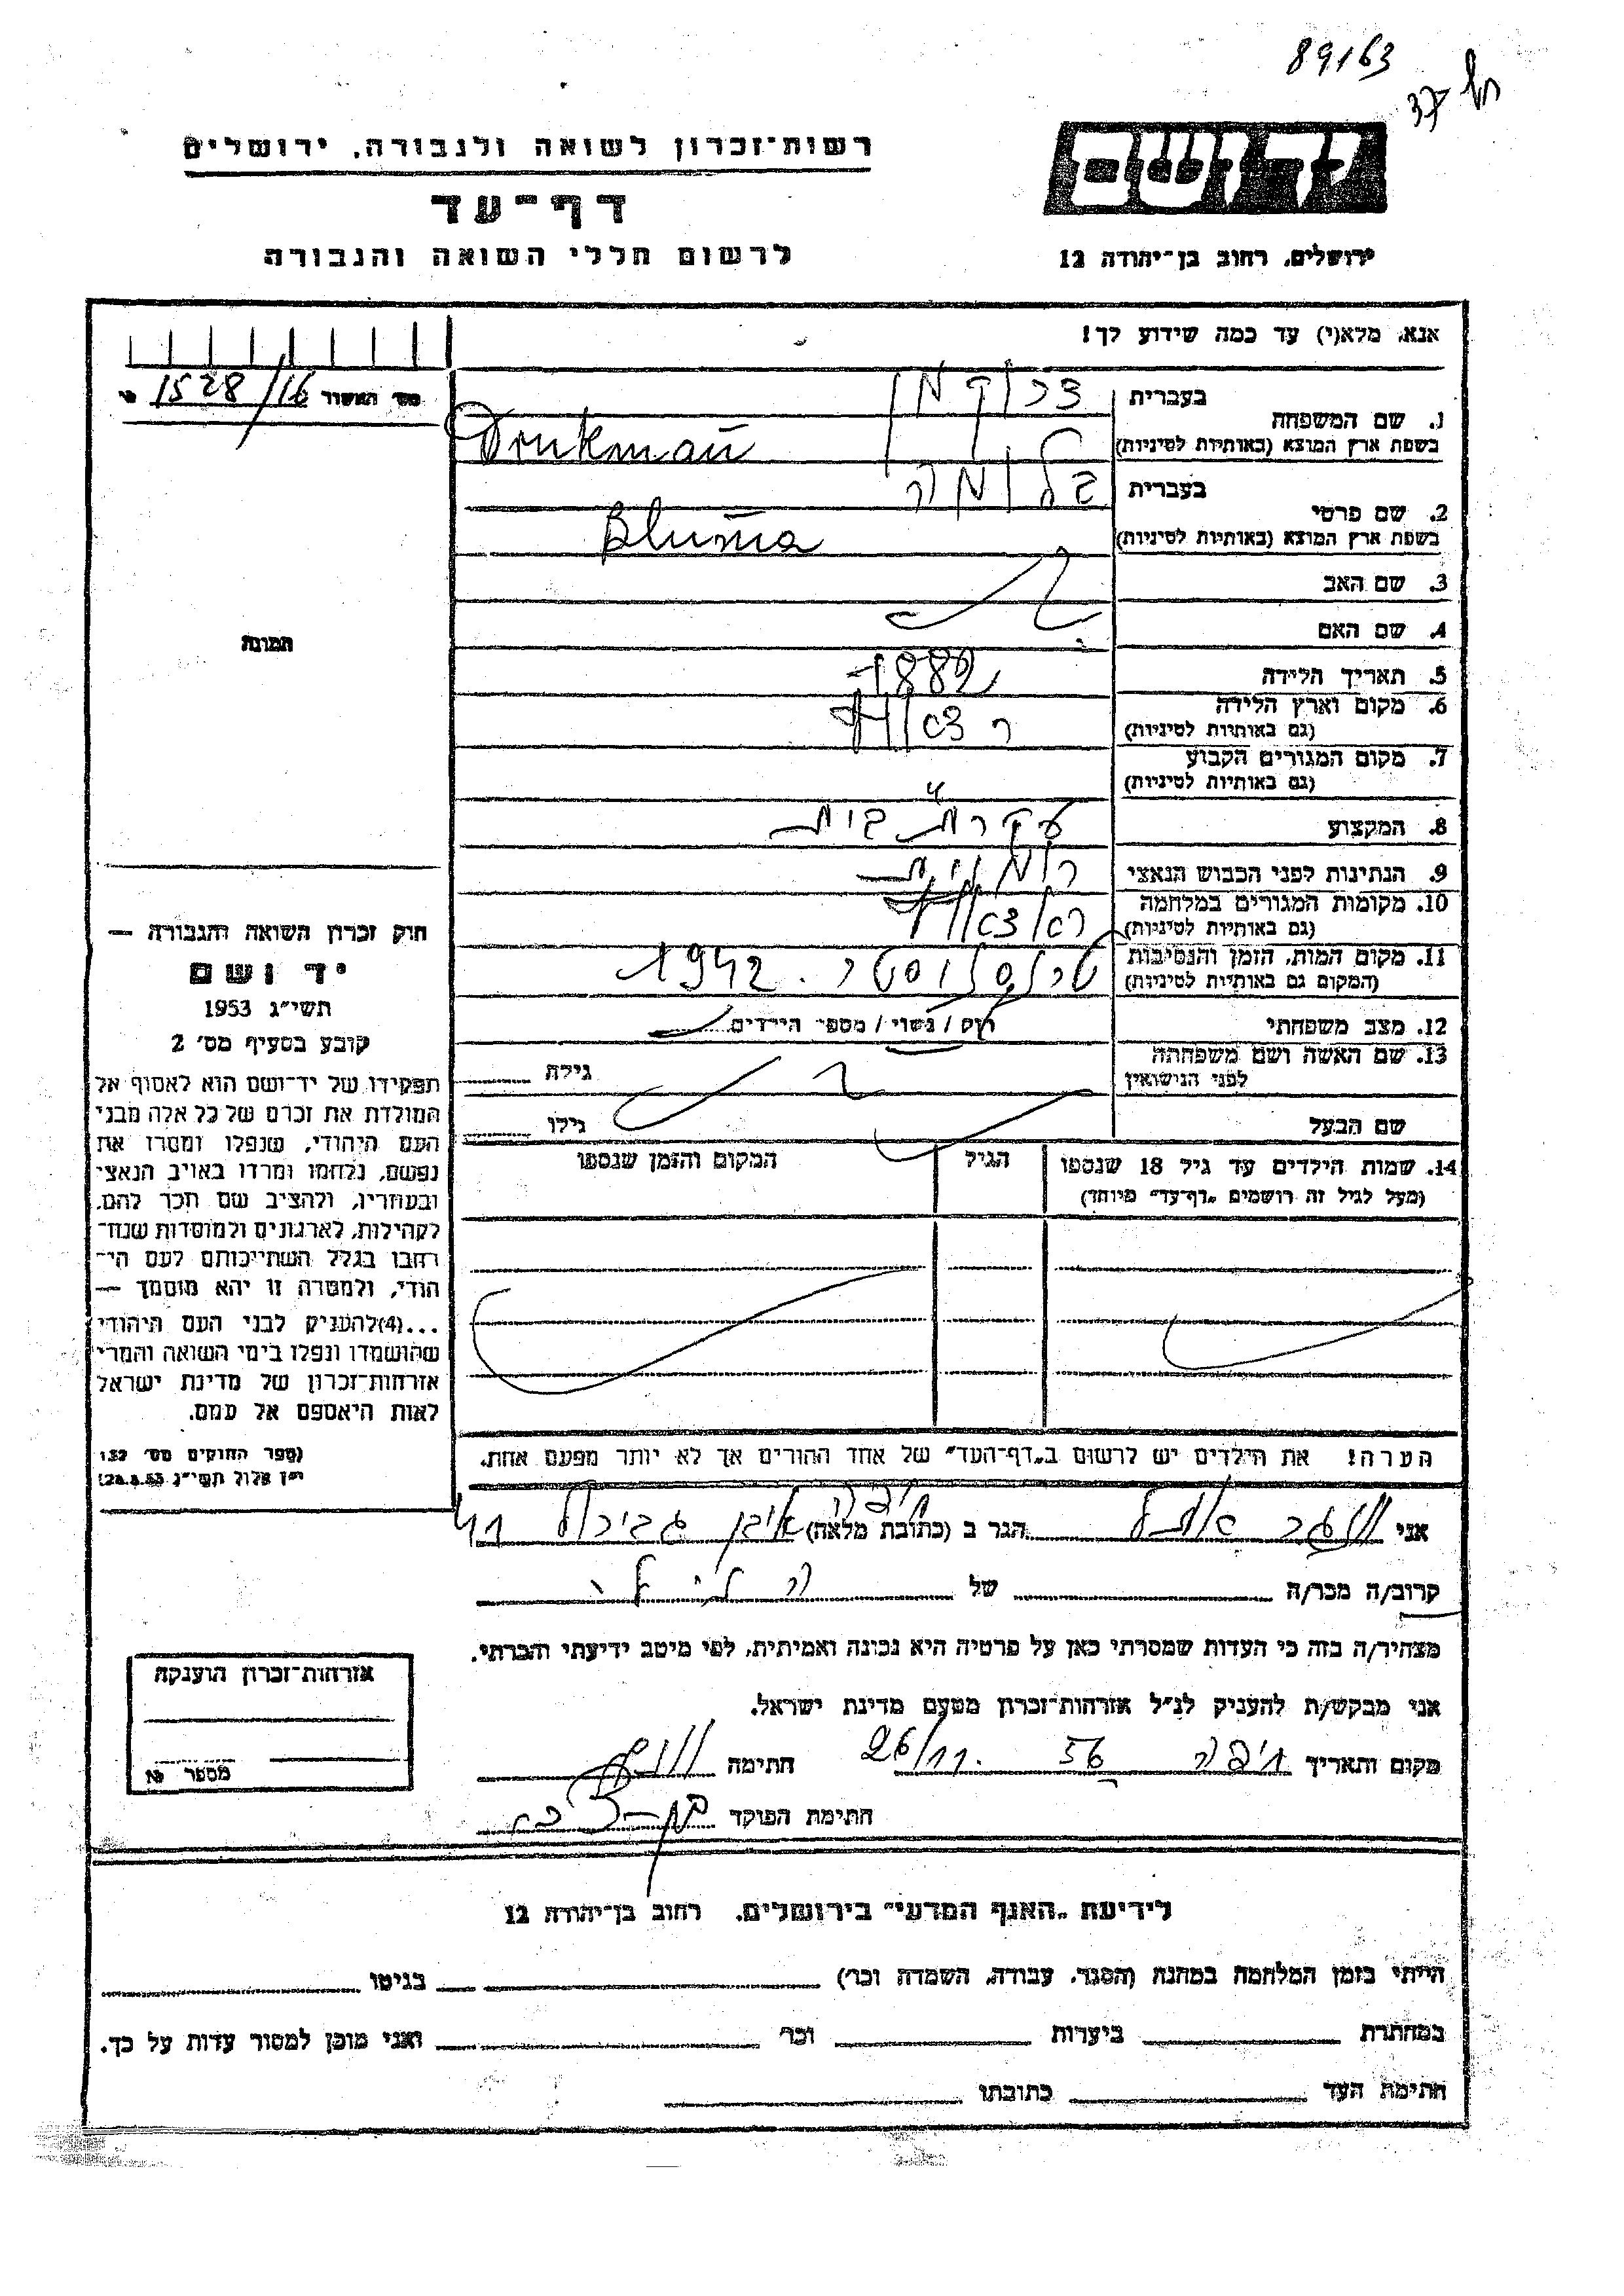 89163
רשות־זכרון לשואה ולגבורה, ירושלים
דף־עד
לרשום חללי השואה והגבורה
יד ושם
ירושלים, רחוב בן־יהודה 12
אנא, מלא(י) עד כמה שידוע לך!
מס׳ האשור 1528/16
1. שם המשפחה
בעברית דרוקמן
בשפת ארץ המוצא (באותיות לטיניות) Drukman
2. שם פרטי
בעברית בלומה
בשפת ארץ המוצא (באותיות לטיניות) Bluma
3. שם האב
4. שם האם
תמונה
5. תאריך הלידה 1882
6. מקום וארץ הלידה
(גם באותיות לטיניות)
7. מקום המגורים הקבוע
(גם באותיות לטיניות)
8. המקצוע עקרת בית
9. הנתינות לפני הכבוש הנאצי רומנית
10. מקומות המגורים במלחמה
(גם באותיות לטיניות)
11. מקום המות, הזמן והנסיבות 1942
(המקום גם באותיות לטיניות)
12. מצב משפחתי רוק / נשוי / מספר הילדים
13. שם האשה ושם משפחתה
לפני הנישואין
גילה
שם הבעל
גילו
14. שמות הילדים עד גיל 18 שנספו
(מעל לגיל זה רושמים „דף־עד״ מיוחד)
הגיל
המקום והזמן שנספו
הערה! את הילדים יש לרשום ב„דף־העד״ של אחד ההורים אך לא יותר מפעם אחת.
חוק זכרון השואה והגבורה —
יד ושם
תשי״ג 1953
קובע בסעיף מס׳ 2
תפקידו של יד־ושם הוא לאסוף אל
המולדת את זכרם של כל אלה מבני
העם היהודי, שנפלו ומסרו את
נפשם, נלחמו ומרדו באויב הנאצי
ובעוזריו, ולהציב שם וזכר להם,
לקהילות, לארגונים ולמוסדות שנח־
רבו בגלל השתייכותם לעם הי־
הודי, ולמטרה זו יהא מוסמך —
...(4)להעניק לבני העם היהודי
שהושמדו ונפלו בימי השואה והמרי
אזרחות־זכרון של מדינת ישראל
לאות היאספם אל עמם.
(ספר החוקים מס׳ 132
י״ז אלול תשי״ג 28.8.53)
אני הגר ב (כתובת מלאה) חיפה אבן גבירול 41
קרוב/ה מכר/ה של
מצהיר/ה בזה כי העדות שמסרתי כאן על פרטיה היא נכונה ואמיתית, לפי מיטב ידיעתי והכרתי.
אני מבקש/ת להעניק לנ״ל אזרחות־זכרון מטעם מדינת ישראל.
מקום ותאריך חיפה 26/11. 56 חתימה
חתימת הפוקד
אזרחות־זכרון הוענקה
מספר
לידיעת „האגף המדעי״ בירושלים, רחוב בן־יהודה 12
הייתי בזמן המלחמה במחנה (הסגר, עבודה, השמדה וכו׳) בגיטו
במחתרת ביערות וכו׳ ואני מוכן למסור עדות על כך.
חתימת העד כתובתו